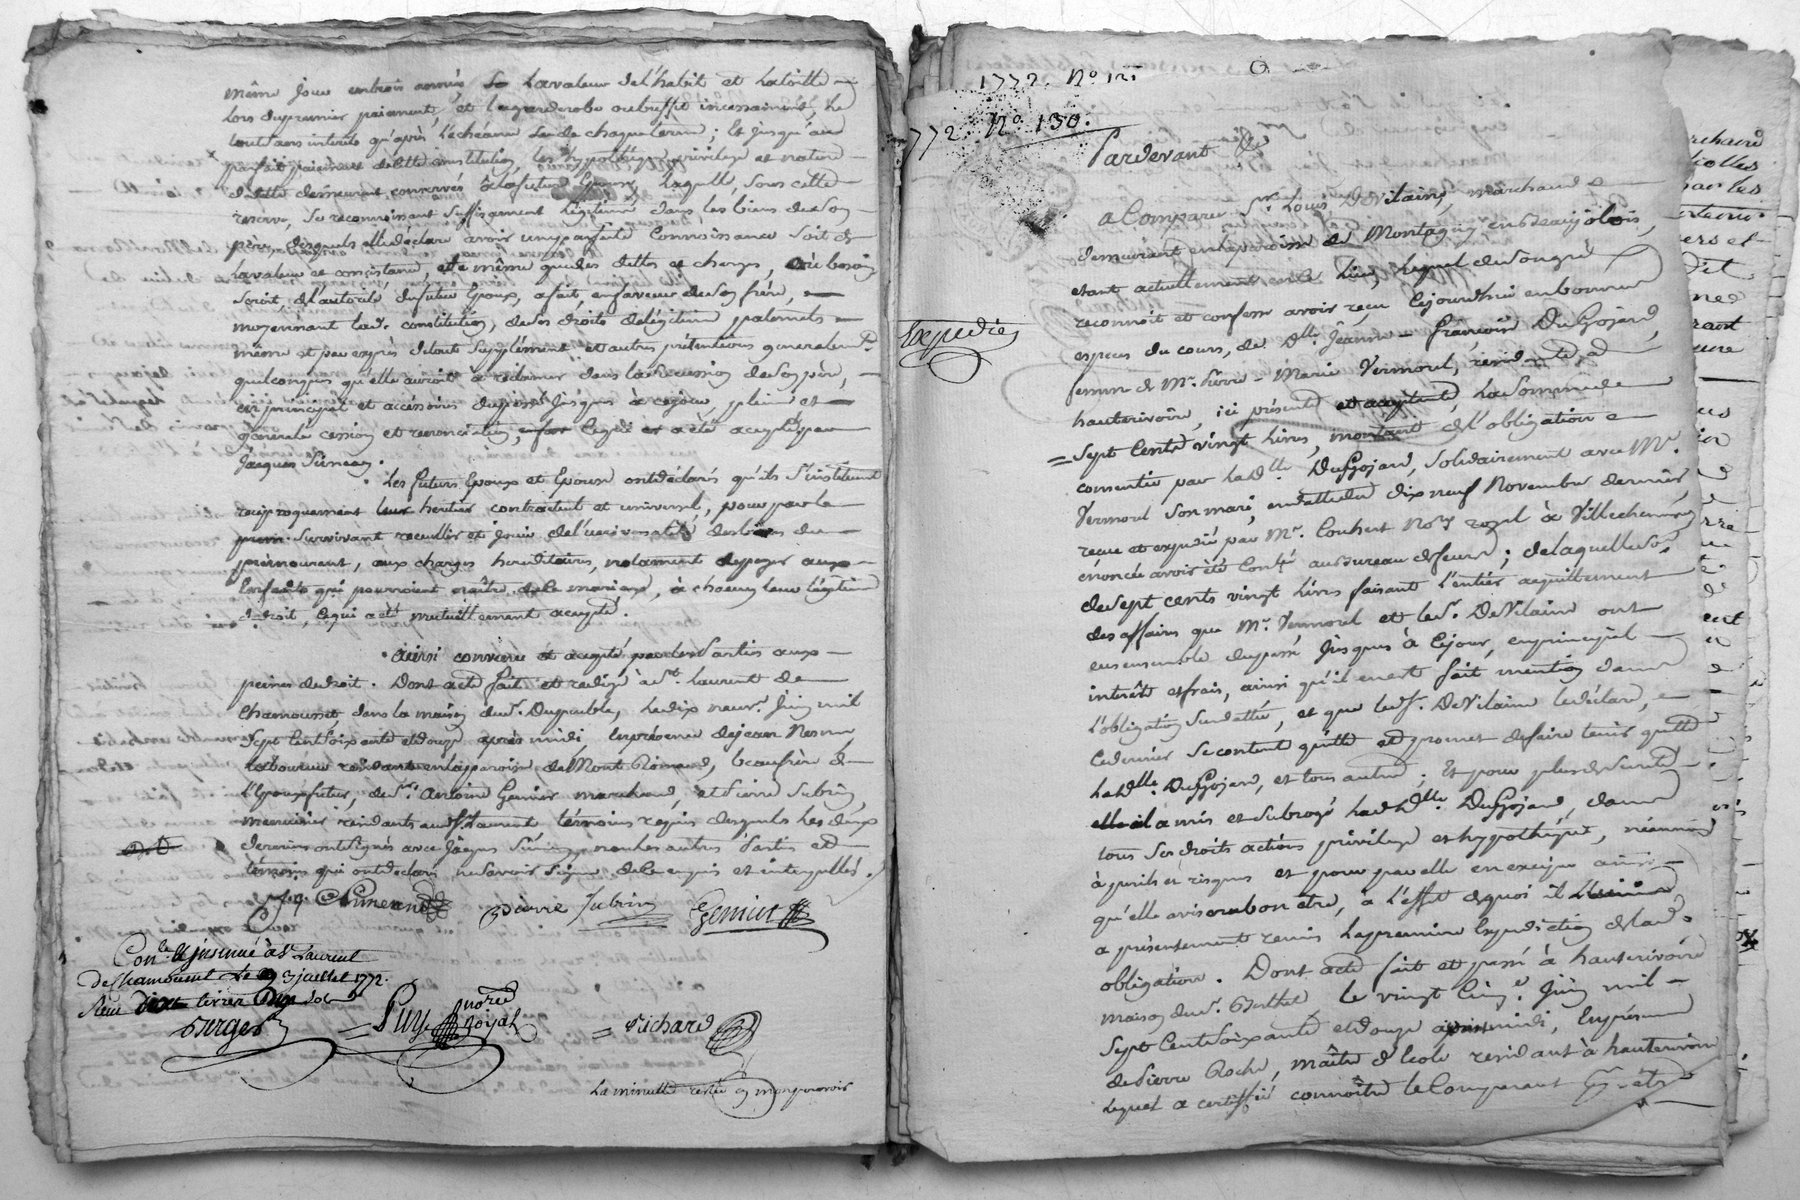 même jour entrois année, La valeur de l'habit et latoilette
Lors dupremier paiement, et la garderobe oubuffet incessamment, Le
tout sans interets qu'après l'echéance de chaque terme; Et jusqu'au
parfait paiement deladite constitution, les hypothèque privilege et nature
de dette demeurent conservés à la future Epouse, Laquelle, sous cette
reserve, se reconnoissant suffisament légitimée dans les biens deson
père, desquels elle déclare avoir une parfaite connoissance soit de
lavaleur et consistance, et même que des dettes et charges, où besoin
seroit, del'autorité dufutur Epoux, a fait, enfaveur deson frère,
moyennant lad. constitution, deses droits de légitime paternels
même et par exprès detout supplément et autres prétentions generalemt
quelconques qu'elle auroit à reclamer dans la succession deson père,
en principal et accessoires dupassé jusques à cejour pleine et
generale cession et renonciation, Cequi a été accepté par
Jacques Simean.
Les futurs Epoux et Epouse ont déclarés qu'ils s'instituent
reciproquement leur heritier contractuel et universel, pour par le
prem. survivant, recueillir et jouir del'universalité des biens du
prémourant, aux charges hereditaires, notament depayer aux
Enfants qui pourroient naître dece mariage, à chacun leur légitime
dedroit, cequi a été mutuellement accepté.
Ainsi convenu et accepté par les Parties aux
peines dedroit. Dont acte fait et redigé à St. Laurent de
Chamousset, dans la maison du Sr. Dupeuble, Le dix neuf. Juin mil
Sept Centsoixante etdouze après midi, Enprésence dejean
Laboureur residant en la parroisse de Mont Romand, beaufrère de
l'Epouxfutur, de Sr. Antoine Genier marchand, et Pierre Subrin
menuisier residants audSt. Laurent témoins requis desquels les deux
derniers ont signés avec Jacques Simean, non les autres Parties et
témoins qui ont declaré ne savoir signer dece enquis et interpellés.
Pierre Subrin Genier
Con.lé & insinué à St Laurent
de Chamousset Le 3 juillet 1772.
Reçu
Berger Puy nore Royal Richard
La minutte restée en mon pouvoir
1772. No. 121
1772. No. 130.
Pardevant &a
A Comparu Sr. Louis DeVilaine, marchand
demeurant en la parroisse de Montagny en Beaujolois,
etant actuellement en ce lieu, Lequel deson gré
reconnoit et confesse avoir reçu Cejourdhui enbonnes
Expediée
especes du cours, de Dlle. Jeanne - Françoise DuGojard,
femme de Mr. Pierre - Marie Vermorel, residente à
hauterivoire, ici présente et acceptante, La somme de
= Sept Cents vingt Livres, montant del'obligation
consentie par lad. Dlle. DuGojard, solidairement avec Mr.
Vermorel son mari, endattedu dix neuf Novembre dernier,
reçue et expediée par Mr. Couhert Nore. royal à Villechenève,
énoncée avoir été Conlée aubureau de feurs; de laquelle so.
deSept cents vingt Livres faisant l'entier acquittement
des affaires que Mr. Vermorel et led. Sr. DeVilaine ont
eues ensemble dupassé jusques à cejour, enprincipal
intérêt et frais, ainsi qu'il en est fait mention dans
l'obligation susdattée, et que led. Sr. DeVilaine ledéclare,
Cedernier se contente quitte et promet defaire tenir quitte
lad. Dlle. DuGojard, et tous autres; Et pour plus de sureté
il a mis et subrogé lad. Dlle. DuGojard, dans
tous ses droits actions privilege et hypothèques, néanmoins
à perils et risques et pour par elle en exciper ainsi
qu'elle avisera bon être, à l'effet dequoi il lui
a présentement remis la premiere Expedition de lad.
obligation. Dont acte fait et passé à hauterivoire
maison du Sr. Berthet, le vingt cinq Juin mil
Sept Centsoixante etdouze après midi, Enprésence
de Pierre Roche, maître d'ecole residant à hauterivoire
Lequel a certiffié connoître le Comparant